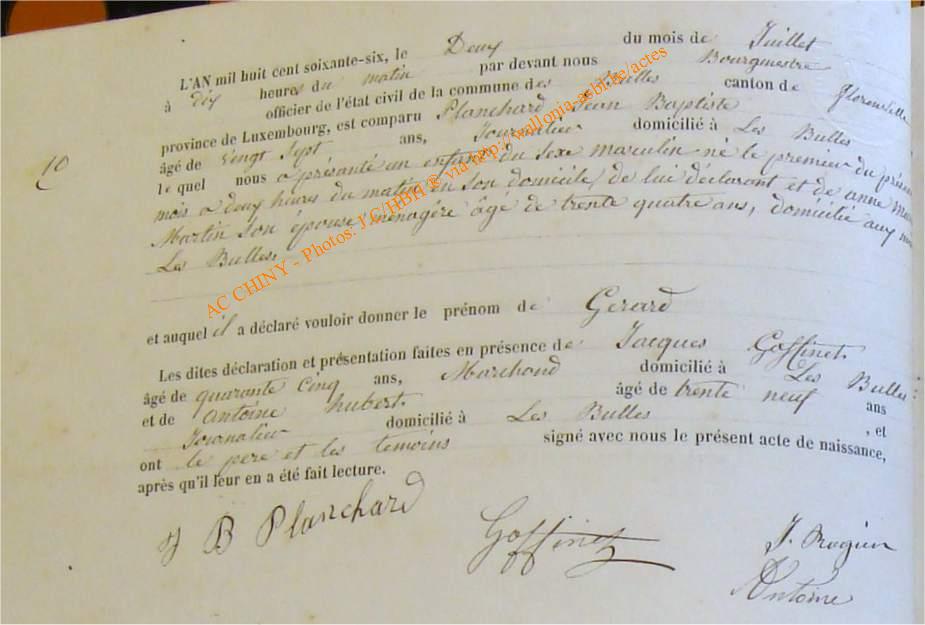 L'AN mil huit cent soixante-six, le Deux du mois de Juillet
à dix heures du matin par devant nous Bourgmestre
officier de l'état civil de la commune des Bulles canton de Florenville
province de Luxembourg, est comparu Planchard Jean Baptiste
âgé de vingt sept ans, Journalier domicilié à Les Bulles
le quel nous a présenté un enfant du sexe masculin né le premier du présent
mois a deux heures du matin en son domicile, de lui déclarant et de anne
10
Martin son épouse ménagère âgé de trente quatre ans, domicilié aux
Les Bulles.
et auquel il a déclaré vouloir donner le prénom de Gerard
Les dites déclaration et présentation faites en présence de Jacques Goffinet
âgé de quarante cinq ans, Marchand domicilié à Les Bulles
et de Antoine hubert âgé de trente neuf ans
Journalier domicilié à Les Bulles , et
ont le pere et les temoins signé avec nous le présent acte de naissance,
après qu'il leur en a été fait lecture.
J B Planchard Goffinet
Antoine
AC CHINY - Photos: J.C/HBH ® via http://wallonia-asbl.be/actes